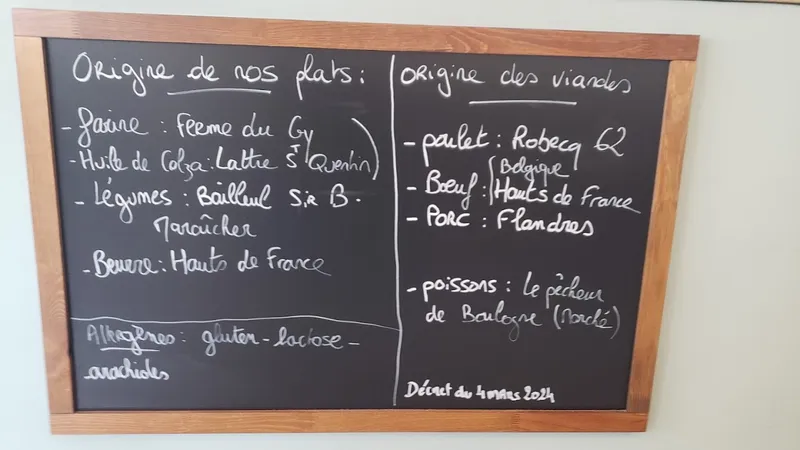 Origine de nos plats :
- farine : Ferme du Gy
- Huile de Colza : Lattre St Quentin
- Légumes : Bailleul Sir B.
Maraîcher
- Beurre : Hauts de France
Allergènes : gluten - lactose -
arachides
Origine des viandes
- poulet : Robecq 62
- Bœuf : Belgique
Hauts de France
- Porc : Flandres
- poissons : le pêcheur
de Boulogne (Marché)
Décret du 4 mars 2024